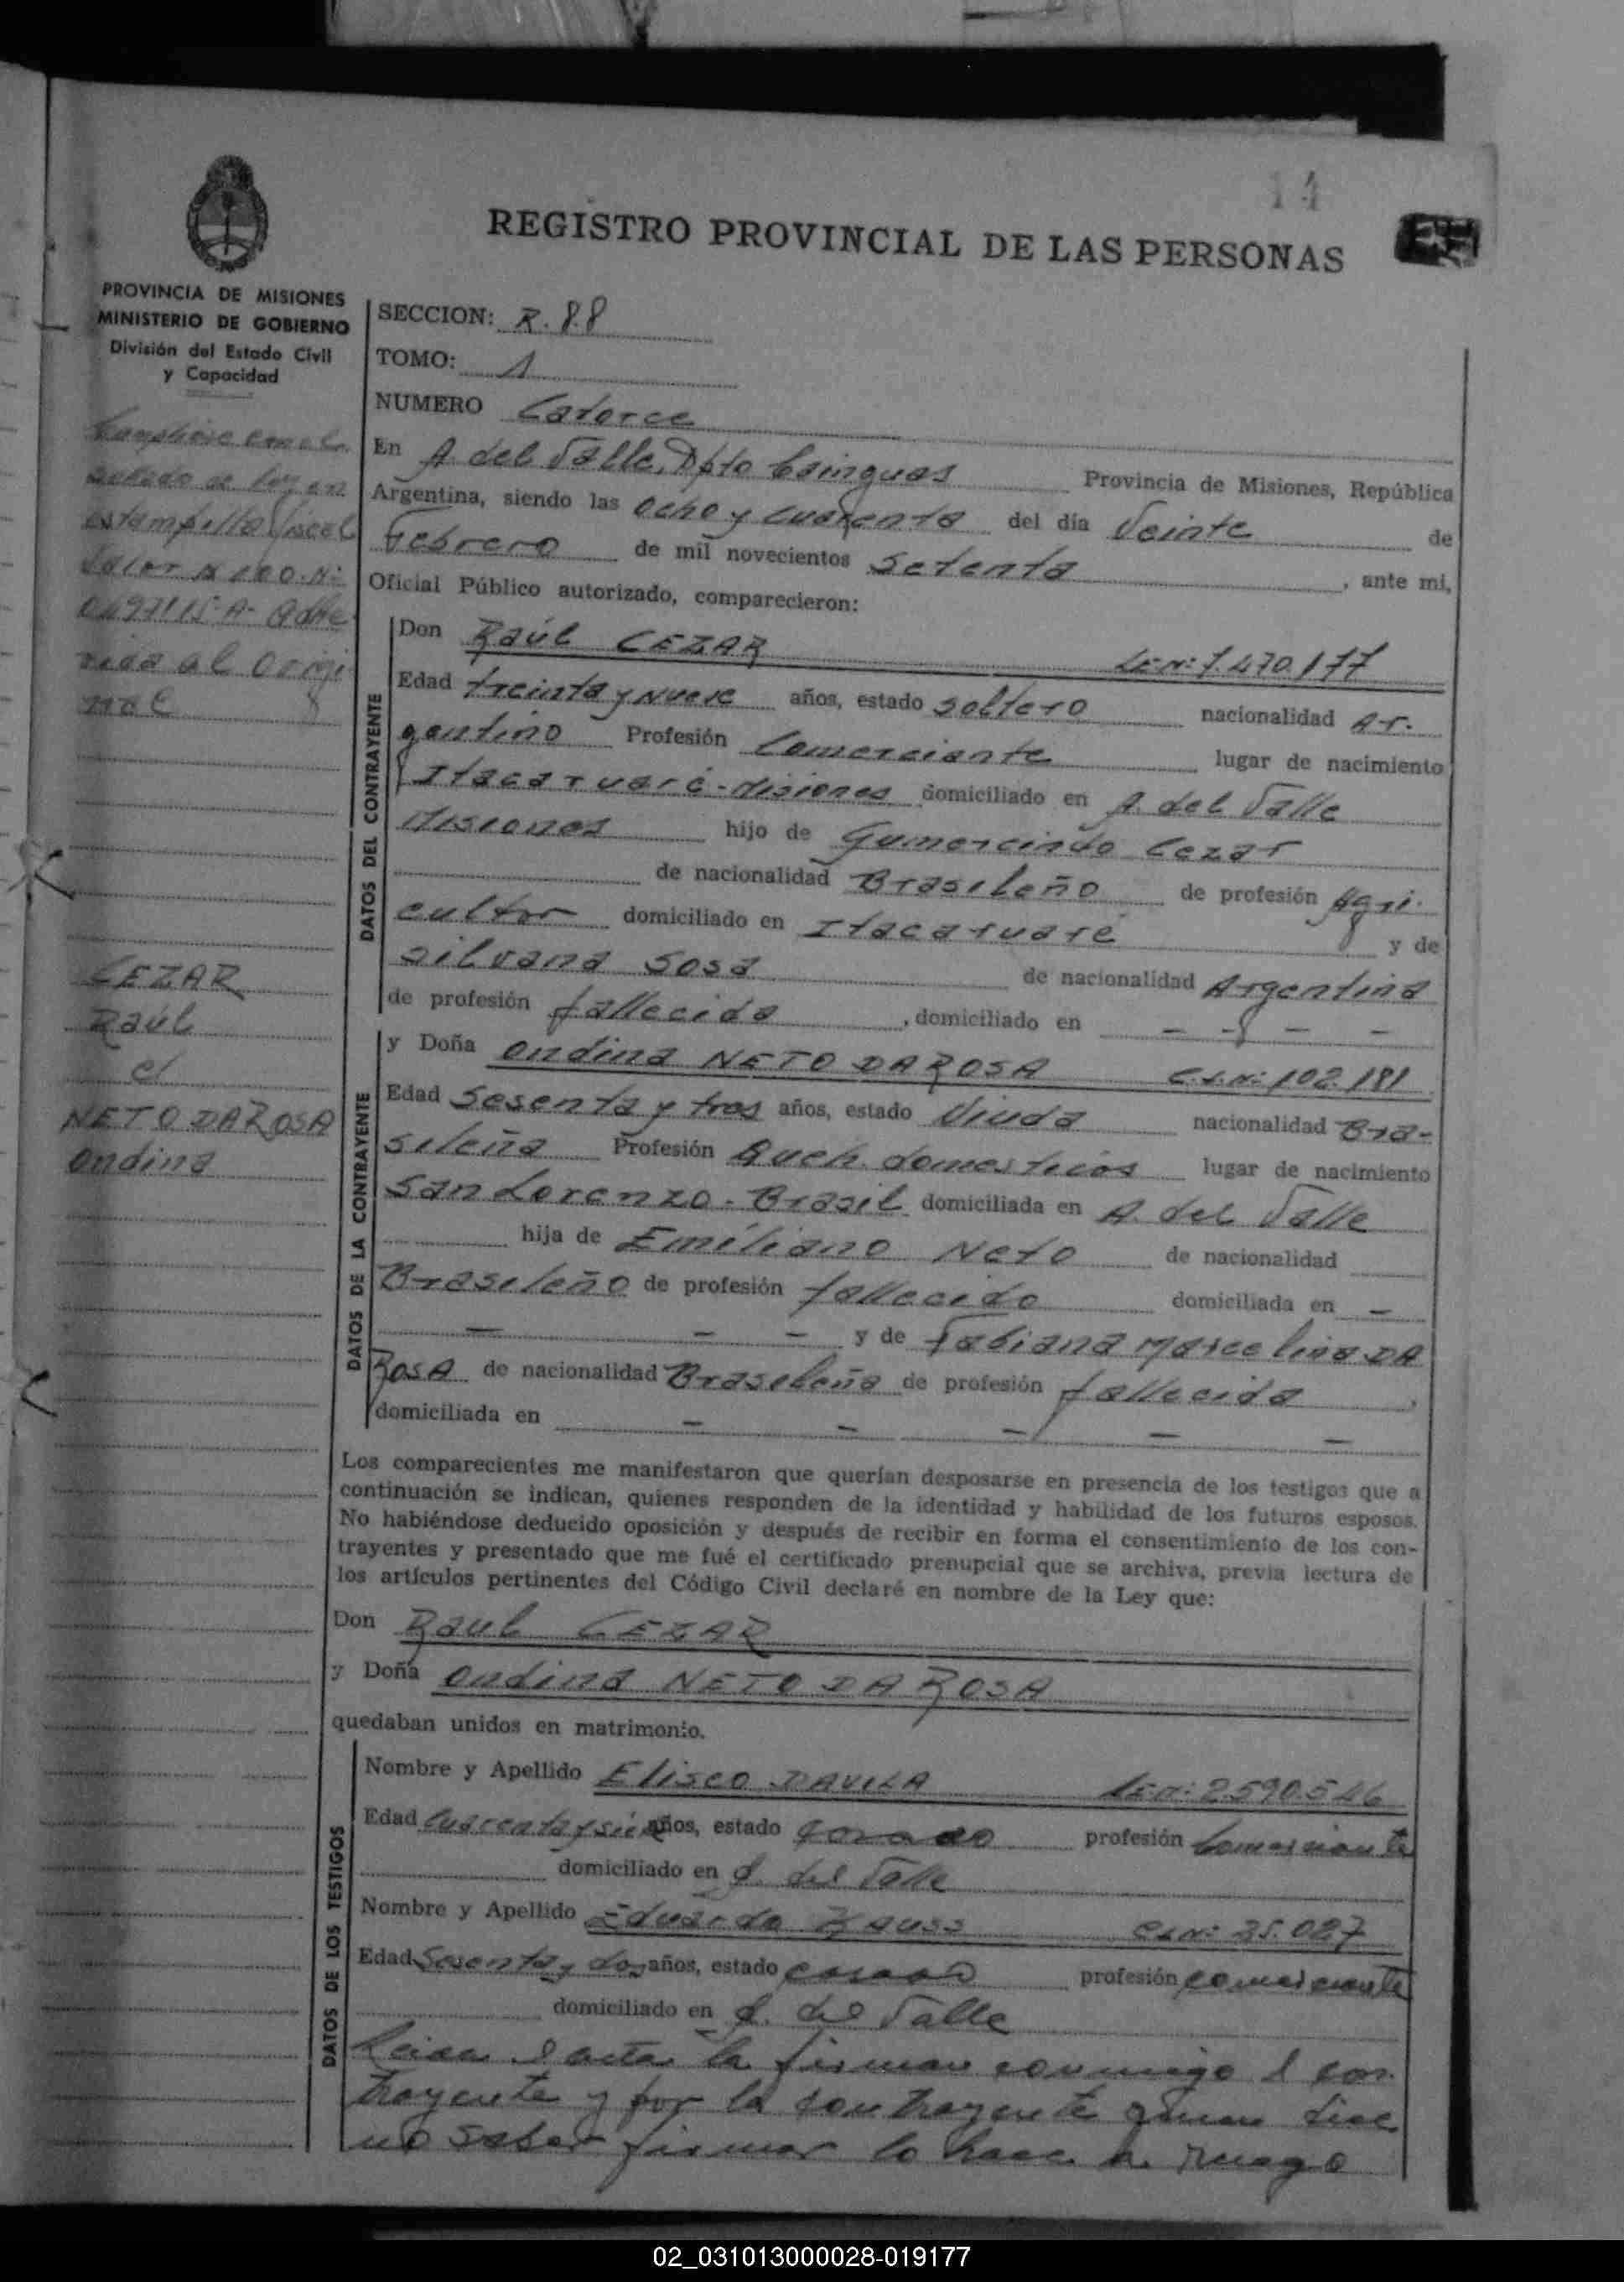 14
REGISTRO PROVINCIAL DE LAS PERSONAS
PROVINCIA DE MISIONES
MINISTERIO DE GOBIERNO
División del Estado Civil
y Capacidad
SECCION: R. 88
TOMO: 1
NUMERO Catorce
En A. del Valle, Dpto Cainguas Provincia de Misiones, República
Argentina, siendo las ocho y cuarenta del día Veinte de
Febrero de mil novecientos Setenta, ante mi,
Oficial Público autorizado, comparecieron:
estampilla fiscal
valor $ 100. N:
al origi
nal
CEZAR
Raúl
c/
NETO DA ROSA
Ondina
DATOS DEL CONTRAYENTE
Don Raúl CEZAR L.E.N: 7.470.177
Edad treinta y nueve años, estado soltero nacionalidad Ar-
gentino Profesión Comerciante lugar de nacimiento
Itacaruaré-Misiones domiciliado en A. del Valle
Misiones hijo de Gumercindo Cezar
de nacionalidad Brasileño de profesión Agri-
cultor domiciliado en Itacaruaré y de
Silvana Sosa de nacionalidad Argentina
de profesión fallecida, domiciliado en - - - -
DATOS DE LA CONTRAYENTE
y Doña Ondina NETO DA ROSA C.I.N: 102.181
Edad Sesenta y tres años, estado Viuda nacionalidad Bra-
sileña Profesión Queh. domesticos lugar de nacimiento
San Lorenzo - Brasil domiciliada en A. del Valle
hija de Emiliano Neto de nacionalidad
Brasileño de profesión fallecido domiciliada en -
- - - y de Fabiana Marcelina DA
ROSA de nacionalidad Brasileña de profesión fallecida,
domiciliada en - - - - -
Los comparecientes me manifestaron que querían desposarse en presencia de los testigos que a
continuación se indican, quienes responden de la identidad y habilidad de los futuros esposos.
No habiéndose deducido oposición y después de recibir en forma el consentimiento de los con-
trayentes y presentado que me fué el certificado prenupcial que se archiva, previa lectura de
los artículos pertinentes del Código Civil declaré en nombre de la Ley que:
Don Raul CEZAR
y Doña Ondina NETO DA ROSA
quedaban unidos en matrimonio.
DATOS DE LOS TESTIGOS
Nombre y Apellido Eliseo DAVILA L.E.N: 2.590.546
Edad Cuarenta y siete años, estado casado profesión Comerciante
domiciliado en A. del Valle
Nombre y Apellido Eduardo C.I.N: 25.027
Edad Sesenta y dos años, estado casado profesión comerciante
domiciliado en A. del Valle
Leida el acta la firman conmigo el con-
trayente y por la contrayente quien dice
no saber firmar lo hace a ruego
02_031013000028-019177